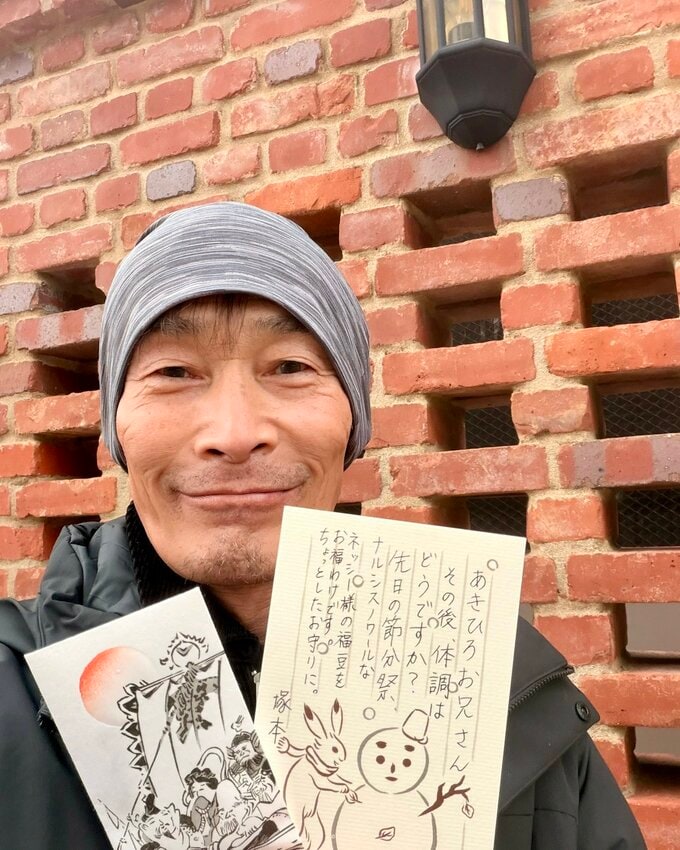 あきひろお兄さん
その後、体調は
どうですか？
先日の節分祭、
ナルシス・ワールな
ネッシー様の福豆を
お福わけです。
ちょっとしたお守りに。
塚本